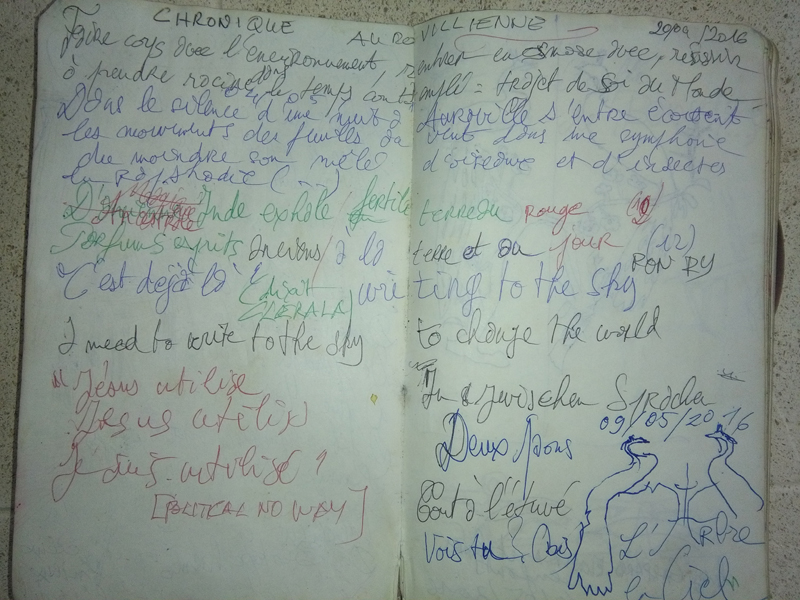 CHRONIQUE AUROVILLIENNE 29/04/2016
Faire corps avec l'environnement, rentrer en osmose avec, réussir
à prendre racine le temps = trajet de Soi du Monde
04/05
Dans le silence d'une nuit à Auroville s'entre écoutent
les mouvements des feuilles dans une symphonie
du moindre son mêlé d'oiseaux et d'insectes
la Rhapsodie (...)
Inde exhôle fertile terre rouge
Parfums esprits anciens à la terre et au jour (12)
RON RY
C'est déjà là! writing to the sky
KERALA
I need to write to the sky to change the world
"Jésus utilise
In zwischen Sprachen
Jesus utilix
09/05/2016
Deux paons
Je suis utilisé ?
bout à l'étuvé
[POLITICAL NO WAY]
Vois tu L'Arbre
en Ciel"